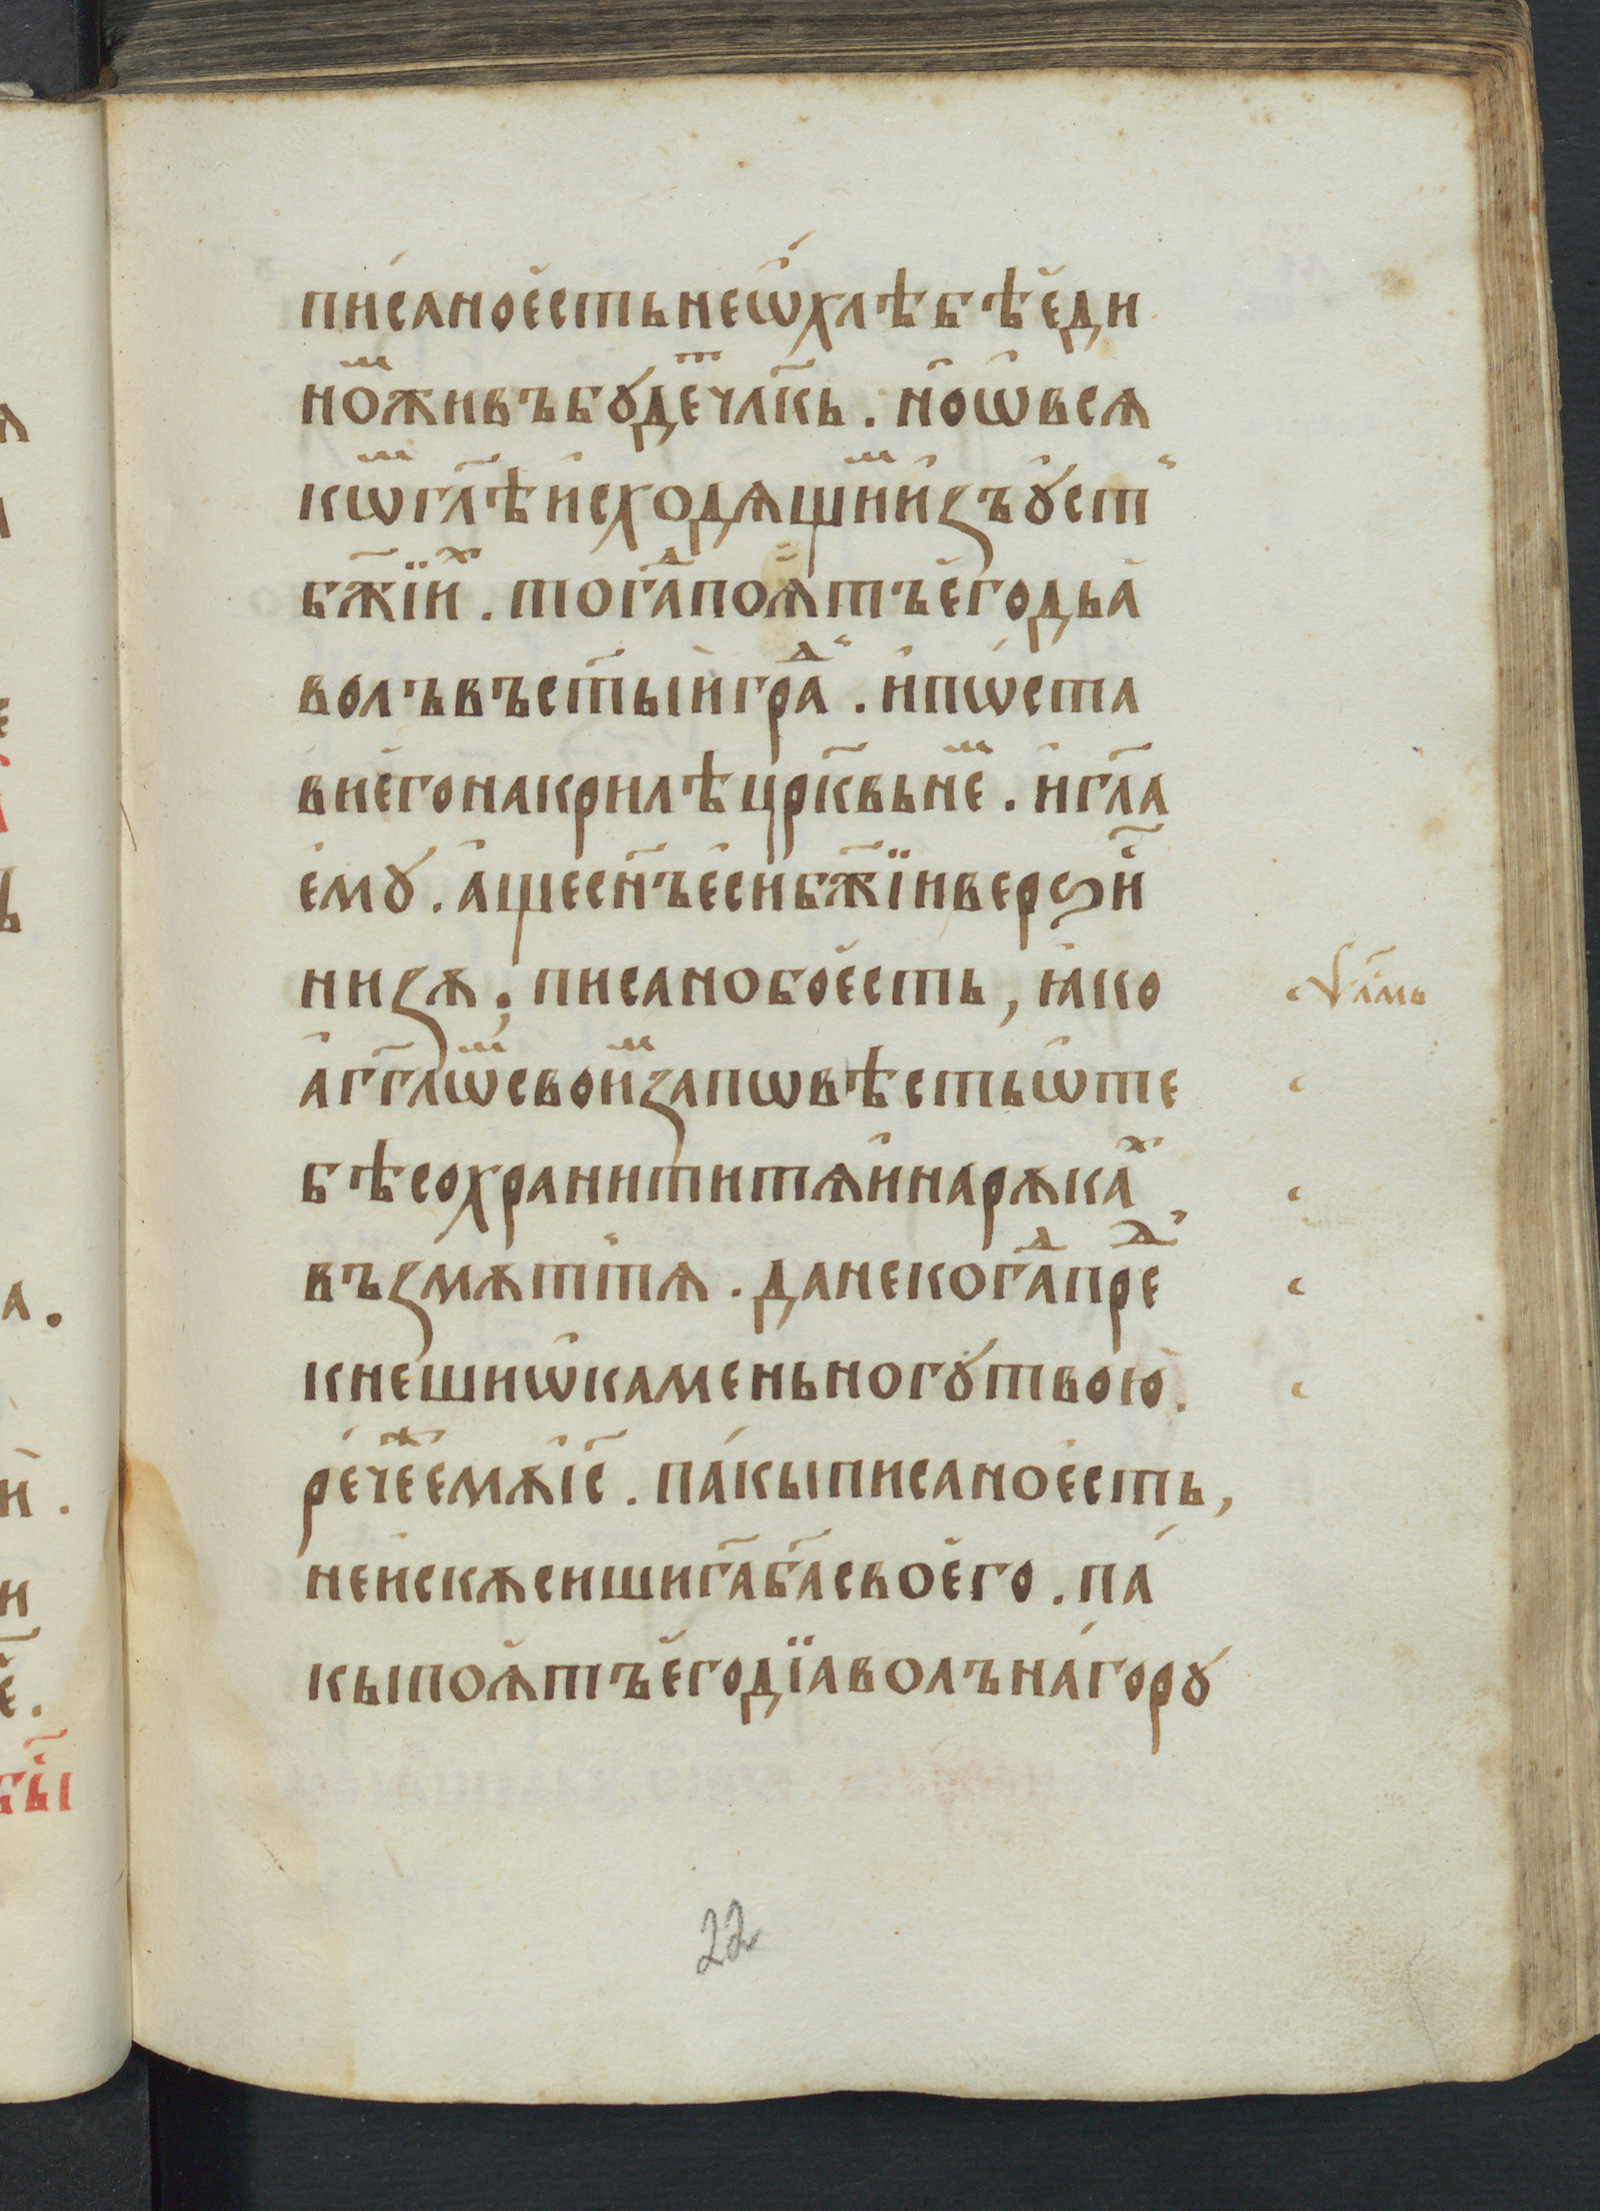 пи́сано є҆сть не ѡ҆ хлѣбѣ є҆ди
но́ⷨ живъ бꙋдеⷮ ч҃лкь . но̑ ѡ҆ вся
кѡⷨ г҃лѣ и҆сходящіиⷨ и҆зъ ꙋ҆стⸯ
б҃жїиⷯ . тогⷣа поꙗ҆тъ є҆го дьа҆
волъ въ ст҃ый граⷣ . и҆ пѡ́ста
ви є҆го на крилѣ цр҃квьнеⷨ . и҆ г҃ла
є҆мꙋ . а҆ще сн҃ъ є҆си б҃жїи верѕи҆
низѫ ; писано бо є҆сть , ꙗ҆ко
а҆гг҃лѡⷨ своиⷨ заповѣсть ѡ҆ те
бѣ сохранити тя и҆ на рѫкаⷯ
възмѫтⸯ тя . да не когⷣа преⷣ
кнеши ѡ҆ камень ногꙋ твою̀ .
рече́ⷤ є҆мѫ і҆с҃ . па́кы писано є҆сть ,
не и҆скѫсиши г҃а б҃а своє҆го . па́
кы поꙗ҆тъ є҆го дїаволъ на́ горꙋ
ѱал҃мь
22